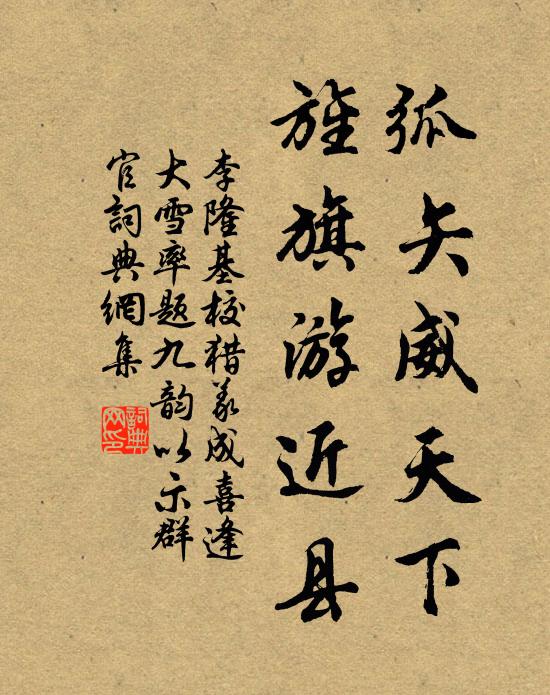 弧矢威天下
旌旗游近县
李隆基校猎义成喜逢
大雪率题九韵以示群
官詞典網集
詞典网印